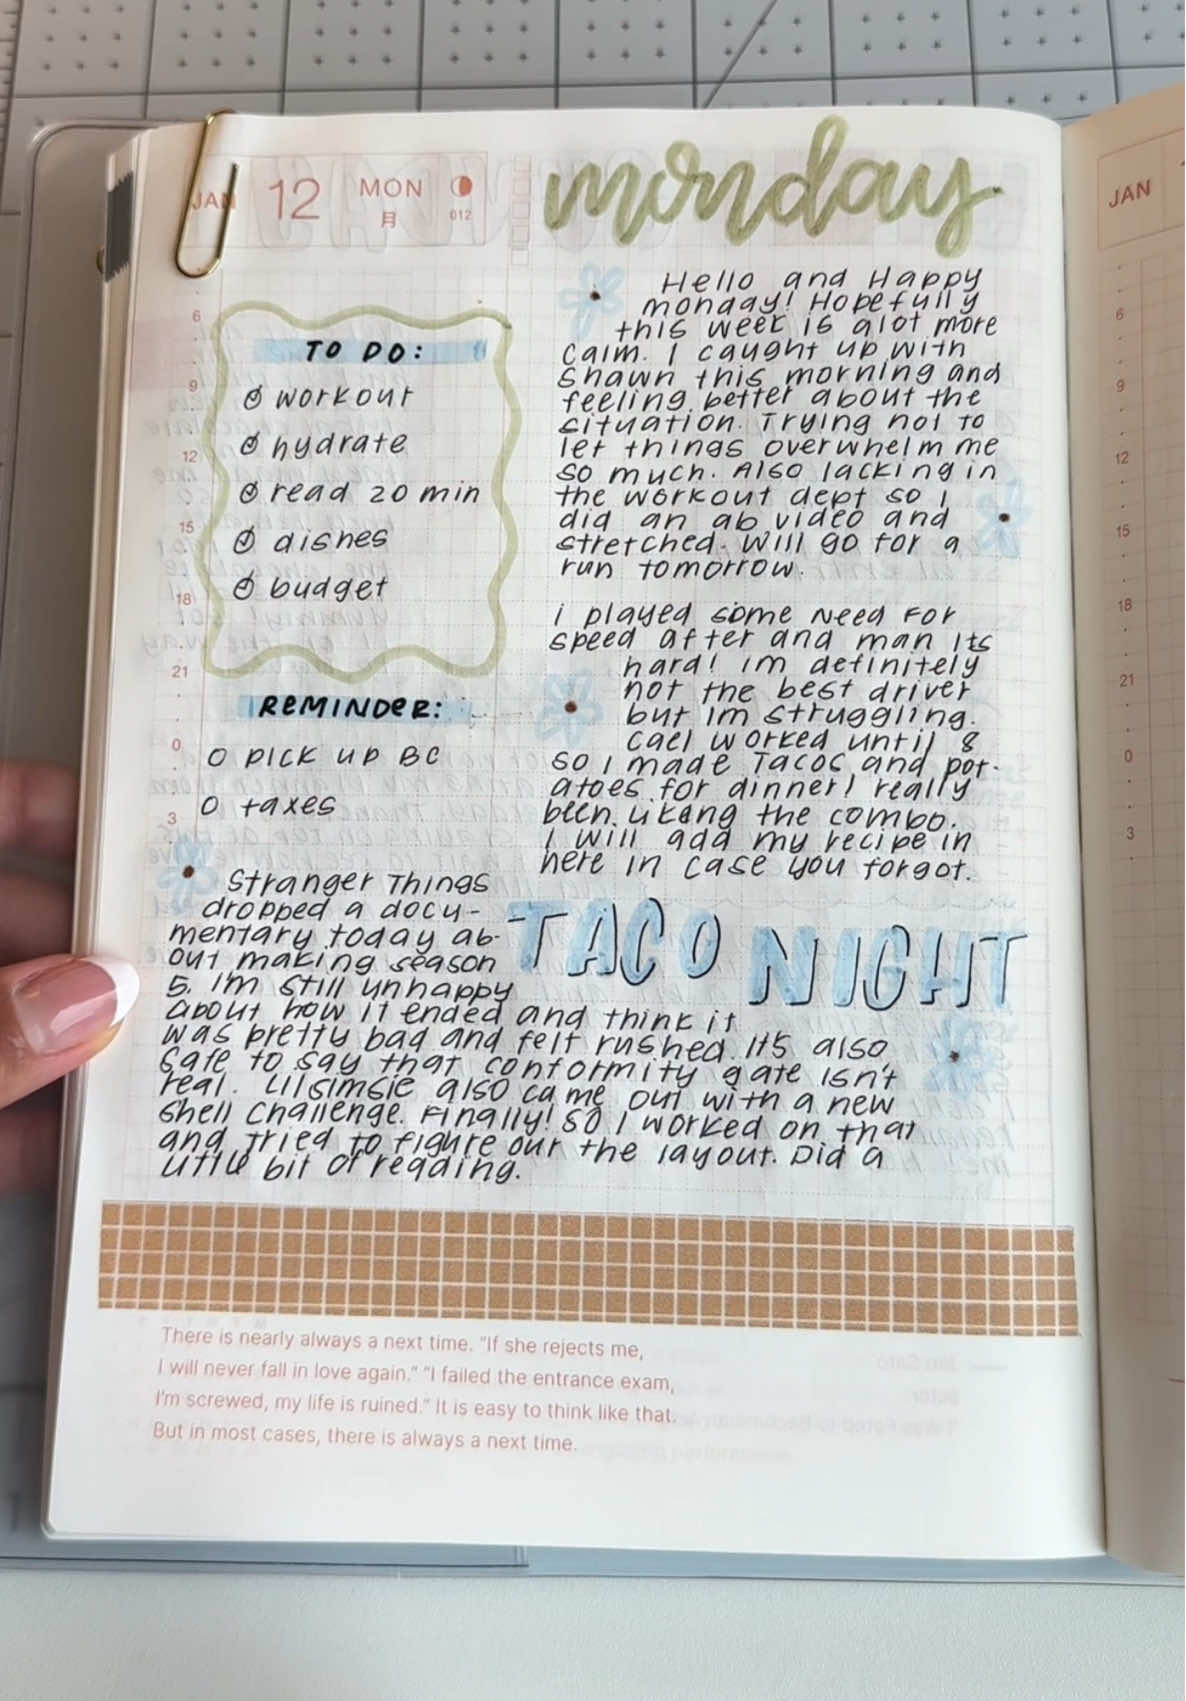 JAN 12 MON
月 012
monday
TO DO:
workout
hydrate
read 20 min
dishes
budget
REMINDER:
O pick up BC
O taxes
6
9
12
15
18
21
0
3
Hello and Happy
monday! Hopefully
this week is alot more
calm. I caught up with
Shawn this morning and
feeling better about the
situation. Trying not to
let things overwhelm me
so much. Also lacking in
the workout dept so I
did an ab video and
stretched. Will go for a
run tomorrow.
i played some Need For
Speed after and man its
hard! im definitely
not the best driver
but im struggling.
Cael worked until 8
so I made Tacos and pot-
atoes for dinner I really
been likang the combo.
I will add my recipe in
here in case you forgot.
TACO NIGHT
Stranger Things
dropped a docu-
mentary today ab-
out making season
5. I'm still unhappy
about how it ended and think it
was pretty bad and felt rushed. It's also
safe to say that conformity gate isn't
real. Lilsimsie also came out with a new
shell challenge. Finally! So I worked on that
and tried to figure our the layout. Did a
little bit of reading.
There is nearly always a next time. "If she rejects me,
I will never fall in love again." "I failed the entrance exam,
I'm screwed, my life is ruined." It is easy to think like that.
But in most cases, there is always a next time.
JAN
6
9
12
15
18
21
0
3